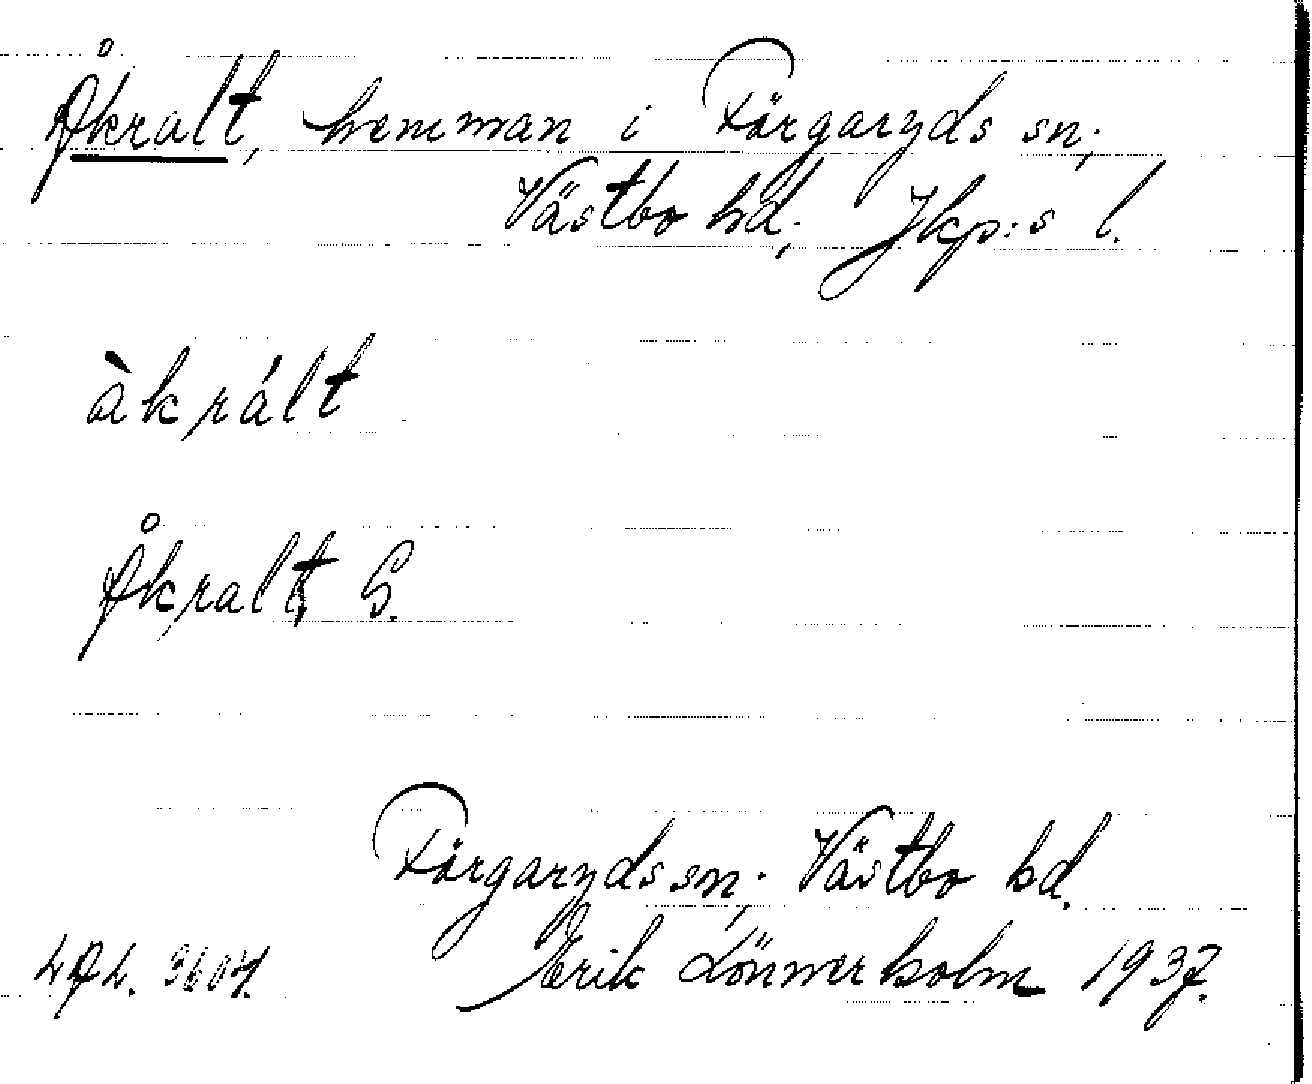 Åkralt, hemman i Färgaryds sn;
Västbo hd; Jkp:s l.
àkrált
Åkralt, S.
Färgaryds sn; Västbo hd.
LAL. 3607. Erik Lönnerholm 1937.